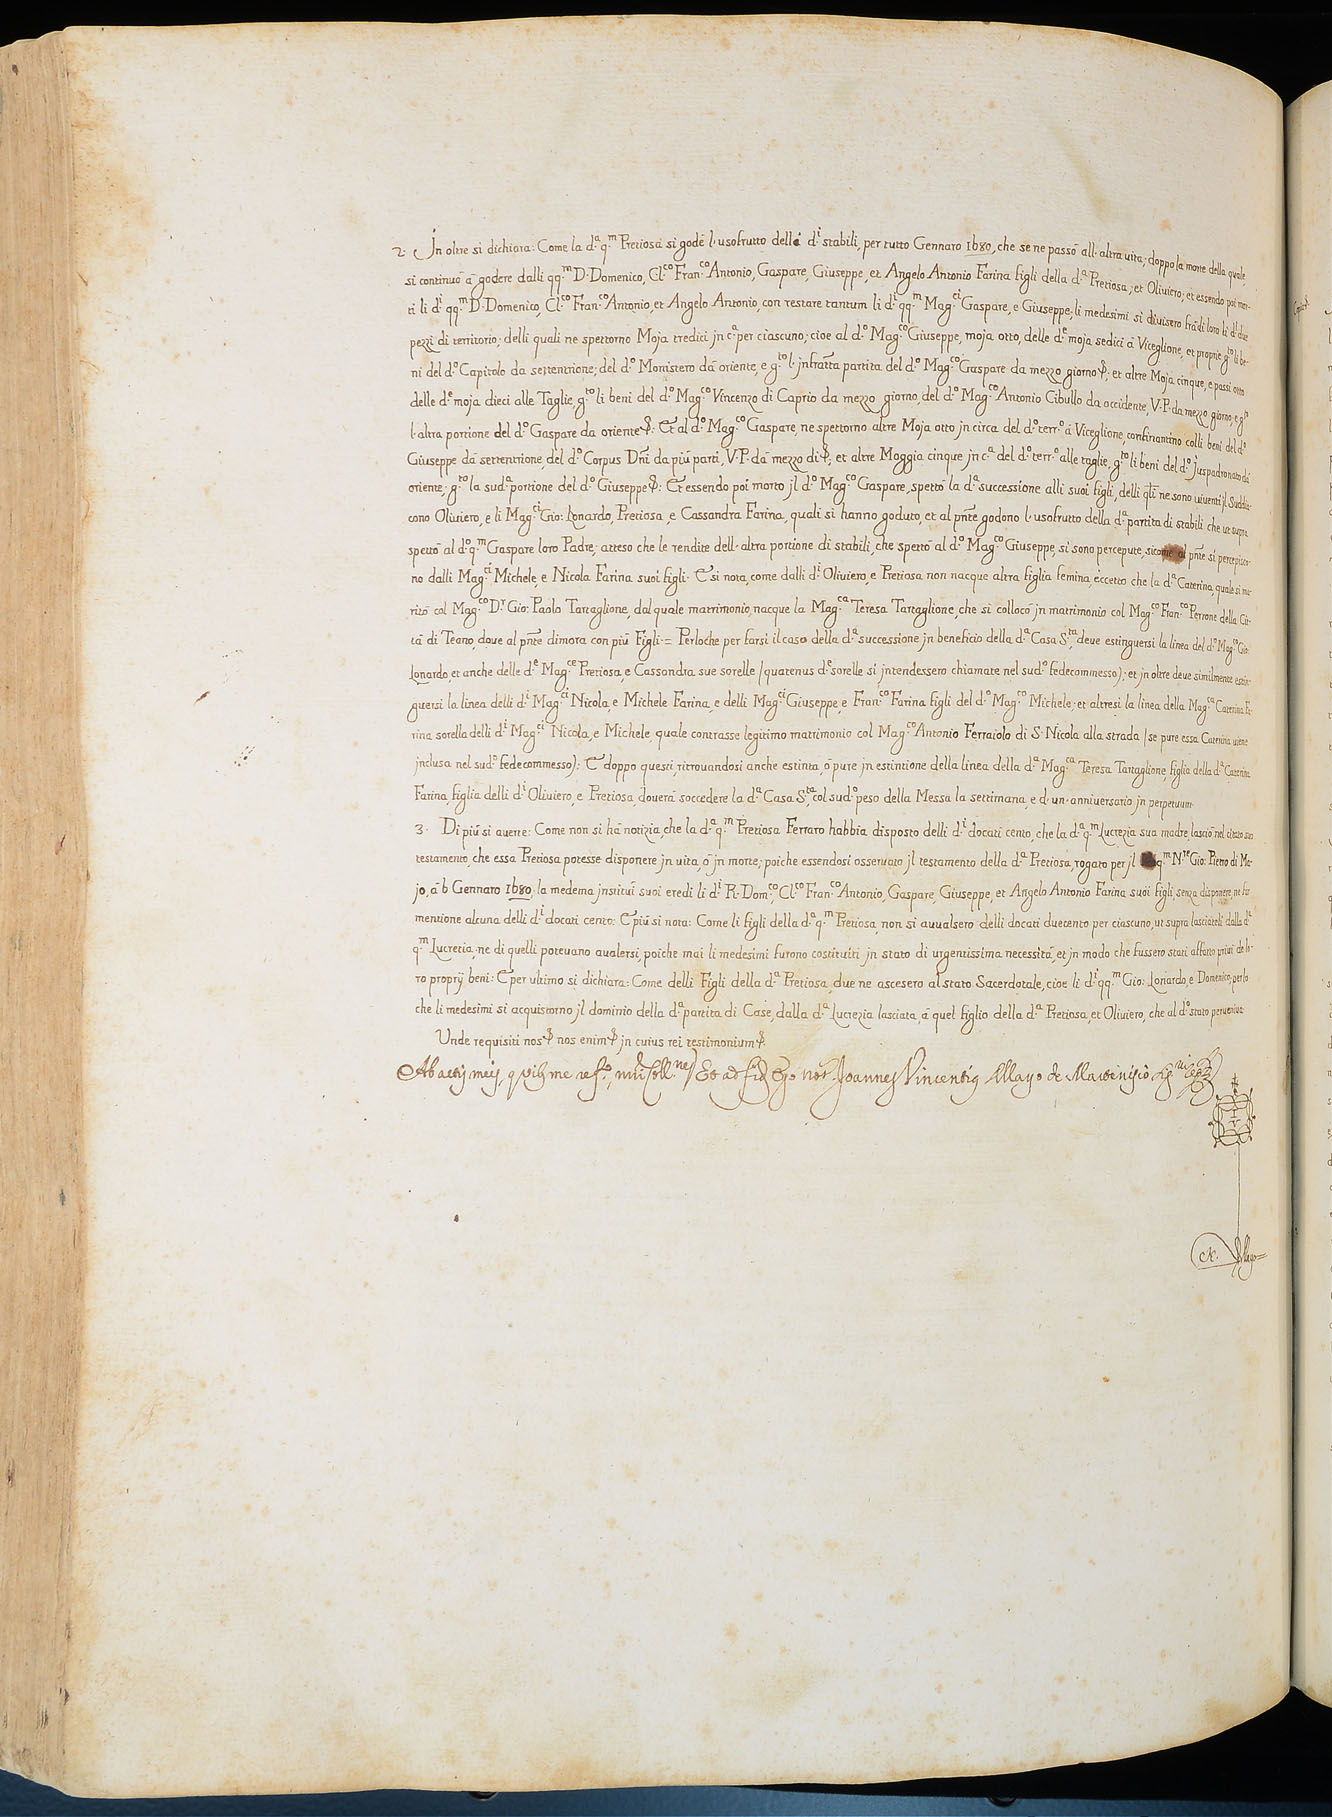 2. In oltre si dichiara: Come la d.ª q.m Pretiosa si godè l'usofrutto delli d.i stabili, per tutto Gennaro 1680, che se ne passò all'altra vita; doppo la morte della quale,
si continuò à godere dalli qq.m D. Domenico, Cl.co Fran.co Antonio, Gaspare, Giuseppe, et Angelo Antonio Farina figli della d.ª Pretiosa, et Oliviero; et essendo poi mor-
ti li d.i qq.m D. Domenico, Cl.co Fran.co Antonio, et Angelo Antonio, con restare tantum li d.i qq.m Mag.ci Gaspare, e Giuseppe; li medesimi si divisero frà di loro li d.i due
pezzi di territorio; delli quali ne spettorno Moja tredici jn c.ª per ciascuno; cioe al d.º Mag.co Giuseppe, moja otto, delle d.e moja sedici à Viceglione, et proprie g.to li be-
ni del d.º Capitolo da settentrione; del d.º Monistero dà oriente, e g.to l'jnfratta partita del d.º Mag.co Gaspare da mezzo giorno &; et altre Moja cinque, e passi otto
delle d.e moja dieci alle Taglie, g.to li beni del d.º Mag.co Vincenzo di Caprio da mezzo giorno, del d.º Mag.co Antonio Cibullo da occidente, V.P. da mezzo giorno, e g.to
l'altra portione del d.º Gaspare da oriente &: Et al d.º Mag.co Gaspare, ne spettorno altre Moja otto jn circa del d.º terr.º à Viceglione, confinantino colli beni del d.º
Giuseppe dà settentrione, del d.º Corpus Dñi da più parti, V.P. dà mezzo dì &; et altre Moggia cinque jn c.ª del d.º terr.º alle taglie, g.to li beni del d.º juspadronato dà
oriente, g.to la sud.ª portione del d.º Giuseppe &: Et essendo poi morto jl d.º Mag.co Gaspare, spettò la d.ª successione alli suoi figli, delli qli ne sono viventi jl Suddia-
cono Oliviero, e li Mag.ci Gio: Lonardo, Pretiosa, e Cassandra Farina, quali si hanno goduto, et al pñte godono l'usofrutto della d.ª partita di stabili che ut supra
spettò al d.º q.m Gaspare loro Padre; atteso che le rendite dell'altra portione di stabili, che spettò al d.º Mag.co Giuseppe, si sono percepute, sicome al pñte si percepisco-
no dalli Mag.ci Michele, e Nicola Farina suoi figli: E si nota, come dalli d.i Oliviero, e Pretiosa non nacque altra figlia femina, eccetto che la d.ª Caterina, quale si ma-
ritò col Mag.co D.r Gio: Paolo Tartaglione, dal quale matrimonio, nacque la Mag.ca Teresa Tartaglione, che si collocò jn matrimonio col Mag.co Fran.co Perrone della Cit-
tà di Teano, dove al pñte dimora con più Figli = Perloche per farsi il caso della d.ª successione jn beneficio della d.ª Casa S.ta, deve estinguersi la linea del d.º Mag.co Gio:
Lonardo, et anche delle d.e Mag.ce Pretiosa, e Cassandra sue sorelle (quatenus d.e sorelle si jntendessero chiamate nel sud.º fedecommesso); et jn oltre deve similmente estin-
guersi la linea delli d.i Mag.ci Nicola, e Michele Farina, e delli Mag.ci Giuseppe, e Fran.co Farina figli del d.º Mag.co Michele; et altresi la linea della Mag.ca Caterina Fa-
rina sorella delli d.i Mag.ci Nicola, e Michele, quale contrasse legitimo matrimonio col Mag.co Antonio Ferraiolo di S. Nicola alla strada (se pure essa Caterina viene
jnclusa nel sud.º fedecommesso): E doppo questi, ritrovandosi anche estinta, ò pure jn estintione della linea della d.ª Mag.ca Teresa Tartaglione, figlia della d.ª Caterina
Farina, figlia delli d.i Oliviero, e Pretiosa, doverà soccedere la d.ª Casa S.ta, col sud.º peso della Messa la settimana, e d'un'anniversario jn perpetuum.
3. Di più si averte: Come non si hà notizia, che la d.ª q.m Pretiosa Ferraro habbia disposto delli d.i docati cento, che la d.ª q.m Lucrezia sua madre, lasciò nel citato suo
testamento, che essa Pretiosa potesse disponere jn vita, ò jn morte; poiche essendosi osservato jl testamento della d.ª Pretiosa, rogato per jl q.m N.re Gio: Pietro di Ma-
jo, à 6 Gennaro 1680. la medema jnstituì suoi eredi li d.i R. Dom.co, Cl.co Fran.co Antonio, Gaspare, Giuseppe, et Angelo Antonio Farina suoi figli, senza disponere, ne far
mentione alcuna delli d.i docati cento: E più si nota: Come li figli della d.ª q.m Pretiosa, non si avvalsero delli docati duecento per ciascuno, ut supra lasciateli dalla d.ª
q.m Lucretia, ne di quelli potevano avalersi, poiche mai li medesimi furono costituiti jn stato di urgentissima necessità, et jn modo che fussero stati affatto privi de lo-
ro proprij beni: E per ultimo si dichiara: Come delli Figli della d.ª Pretiosa, due ne ascesero al stato Sacerdotale, cioe li d.i qq.m Gio: Lonardo, e Domenico; perlo
che li medesimi si acquistorno jl dominio della d.ª partita di Case, dalla d.ª Lucrezia lasciata, à quel figlio della d.ª Pretiosa, et Oliviero, che al d.º stato perveniva.
Unde requisiti nos & nos enim & jn cuius rei testimonium &.
Ab actis meis, Et ad fid. Ego Not. Joannes Vincentius de Mayo de Martenisio
N. Mayo